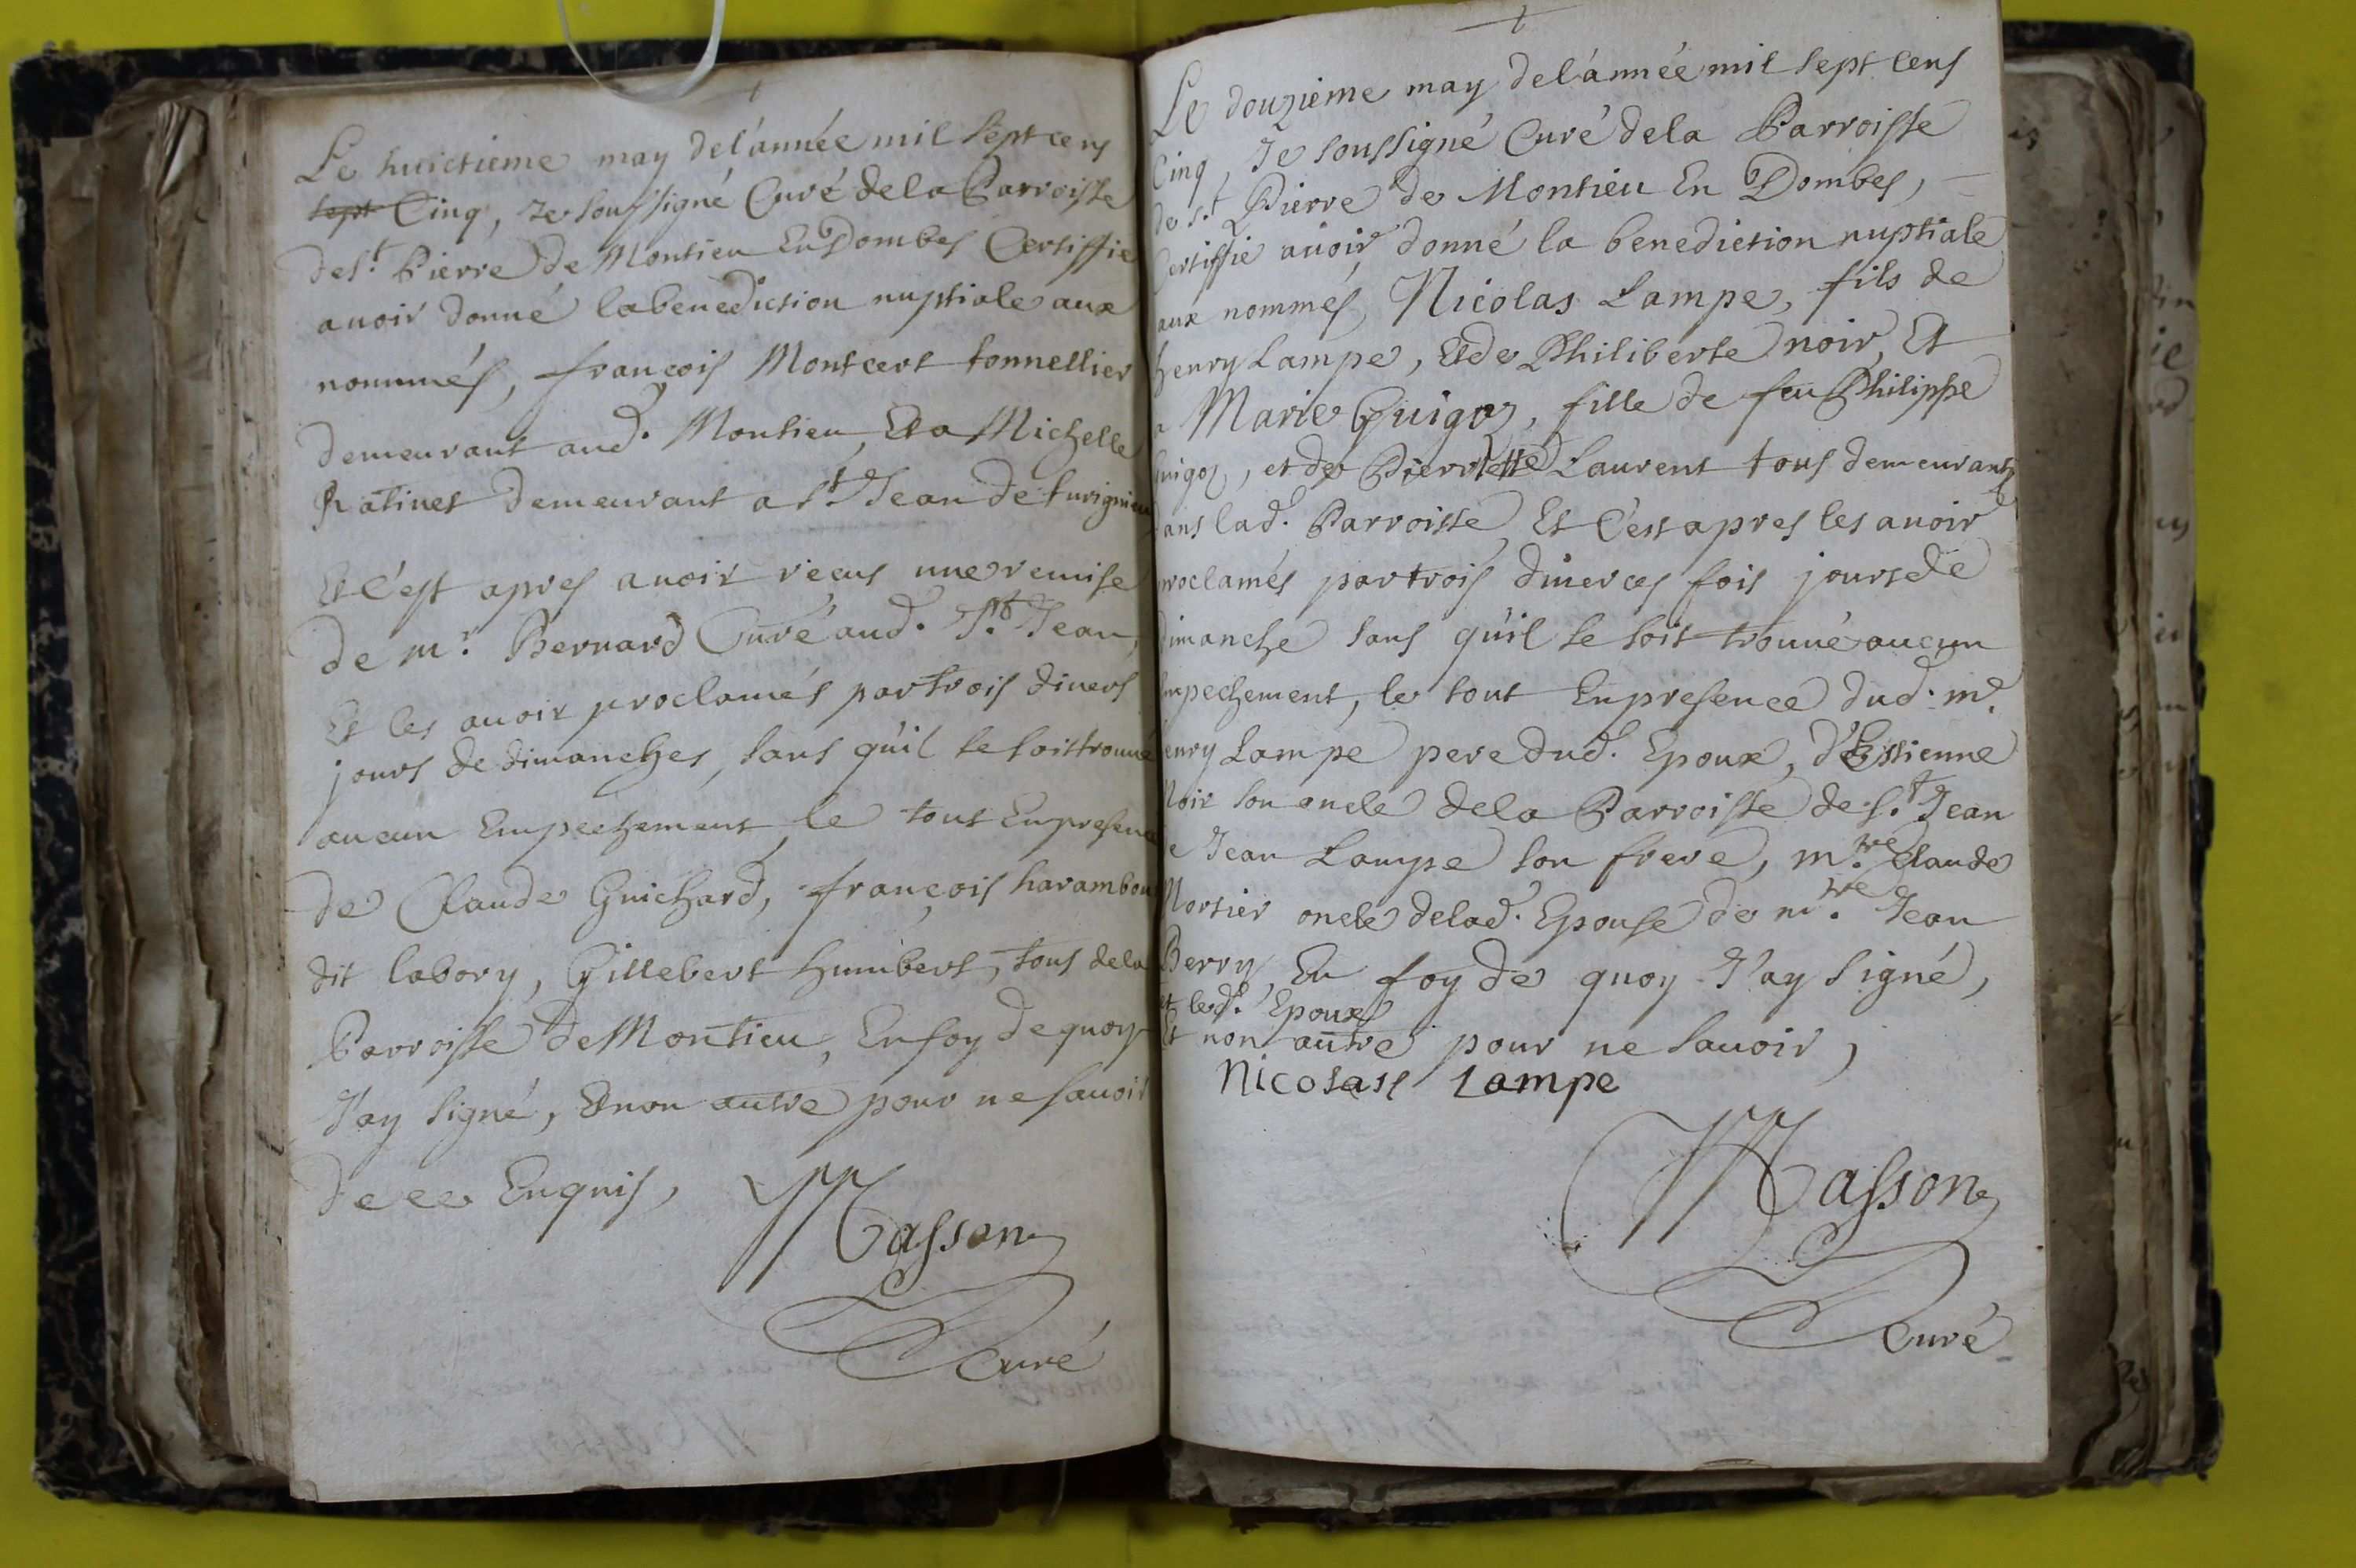 Le huictieme may del'année mil sept cens
sept Cinq, Je soussigné Curé dela Parroisse
de St. Pierre de Montieu En Dombes Certiffie
avoir donné la benediction nuptiale aux
nommés, françois Montcert tonnellier
demeurant aud. Montieu, Et a Michelle
Ratinet demeurant a St. Jean de turignieu
Et C'est apres avoir reçus une remise
de mr. Bernard Curé aud. St. Jean,
Et les avoir proclamés par trois divers
jours de dimanches, sans qu'il se soit trouvé
aucun Empechement, le tout En presence
de Claude Guichard, françois harambou
dit labory, Gillebert humbert, tous dela
Parroisse de Montieu, En foy de quoy
J'ay signé, Et non autre pour ne savoir
de ce Enquis,
Masson
Curé
Le douzieme may del'année mil sept cens
Cinq, Je soussigné Curé dela Parroisse
de St. Pierre de Montieu En Dombes,
Certiffie avoir donné la benediction nuptiale
aux nommés, Nicolas Lampe, fils de
henry Lampe, Et de Philiberte noir, Et
a Marie Guigoz, fille de feu Philippe
Guigoz, et de Pierrette Laurent tous demeurants
dans lad. Parroisse, Et C'est apres les avoir
proclamés par trois diverces fois jours de
Dimanche sans qu'il se soit trouvé aucun
Empechement, le tout En presence dud. me.
henry Lampe pere dud. Epoux, d'Estienne
Noir son oncle dela Parroisse de St. Jean
de Jean Lampe son frere, mtre. Claude
Mortier oncle delad. Epouse de mtre. Jean
Berry, En foy de quoy J'ay signé,
et led. Epoux
Et non autre pour ne savoir,
Nicolase Lampe
Masson
Curé